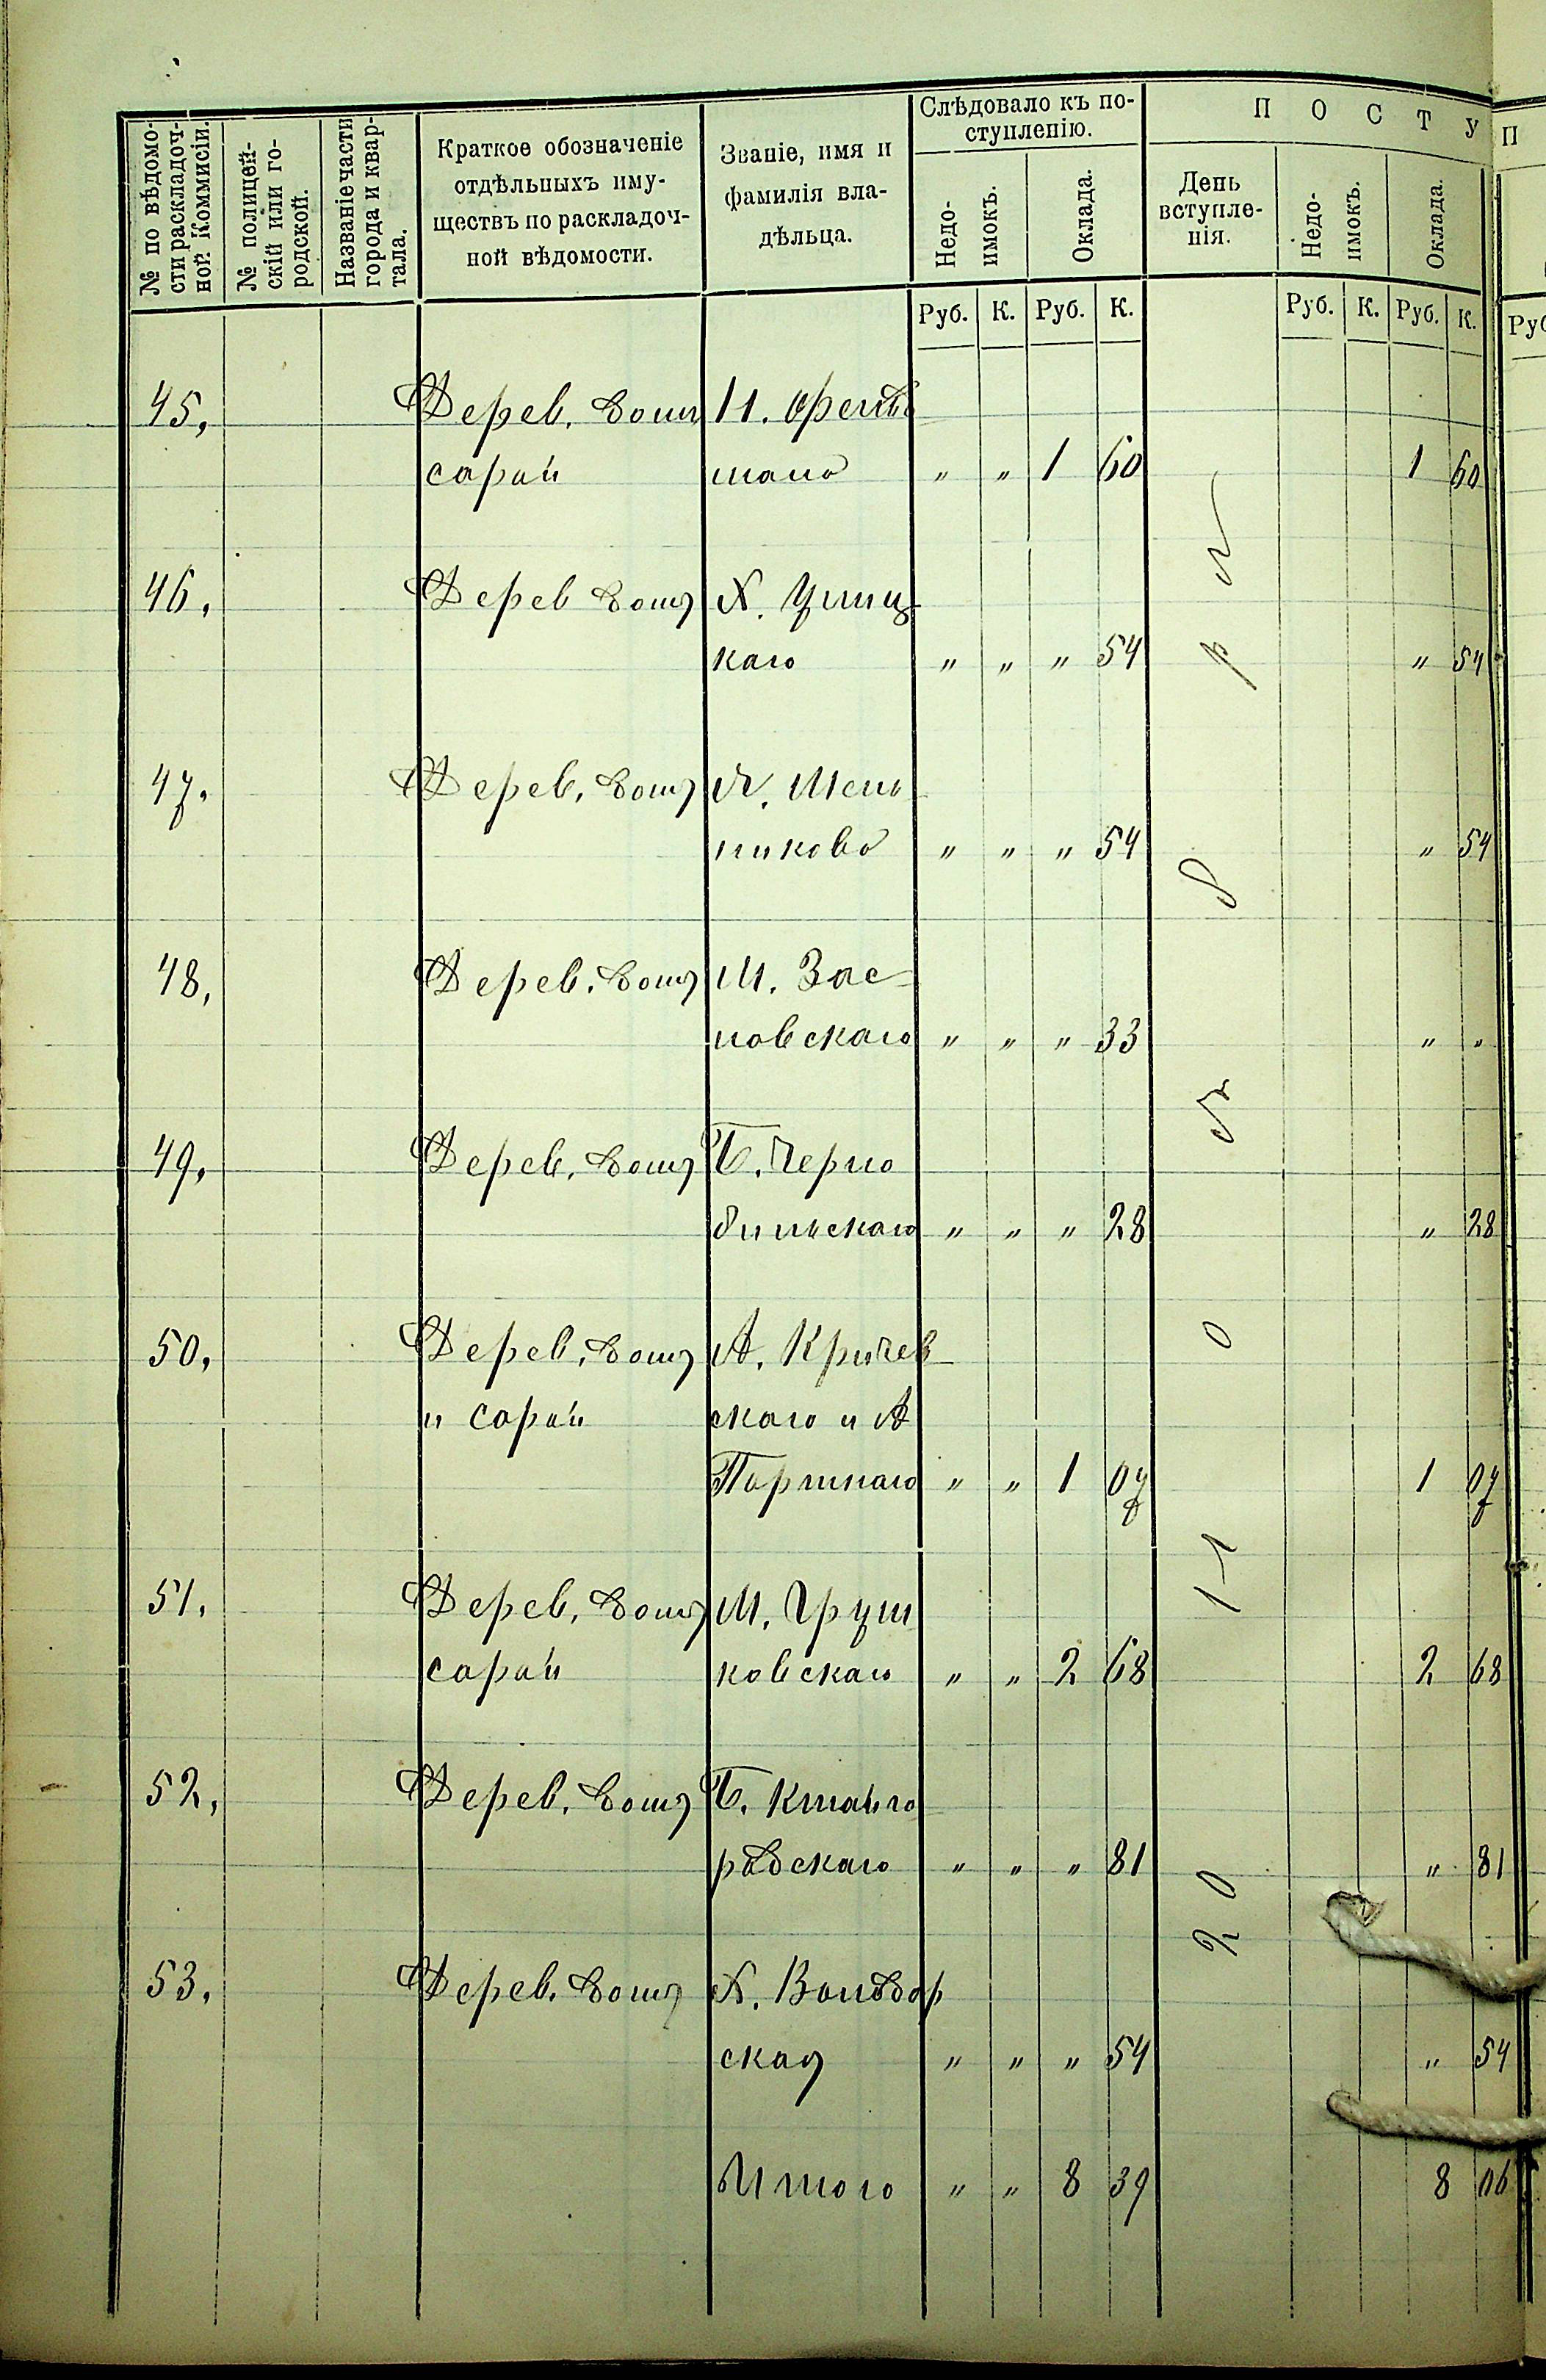 № по вѣдомо-
сти раскладоч-
ной Коммисіи.
№ полицей-
скій или го-
родской.
Названіе части
города и квар-
тала.
Краткое обозначеніе
отдѣльныхъ иму-
ществъ по раскладоч-
ной вѣдомости.
Званіе, имя и
фамилія вла-
дѣльца.
Слѣдовало къ по-
ступленію.
Недо-
имокъ.
Оклада.
П О С Т У
День
вступле-
нія.
Недо-
имокъ.
Оклада.
П
Руб. К. Руб. К. Руб. К. Руб. К.
45, Дерев. домъ И.
сарай мана " " 1 60 1 60
46. Дерев домъ Х. Улиц
каго " " " 54 " 54
47. Дерев. домъ
никова " " " 54 " 54
48, Дерев. домъ М. Зас-
новскаго " " " 33 " "
49, Дерев. домъ Б. Черно
бильскаго " " " 28 " 28
50, Дерев. домъ А. Кричев
и сарай скаго и А
Портнаго " " 1 07 1 07
51. Дерев. домъ М. Груш
сарай ковскаго " " 2 68 2 68
52, Дерев. домъ Б.
радскаго " " " 81 " 81
53. Дерев. домъ Х. Вольдар
ская " " " 54 " 54
Итого " " 8 39 8 06
20